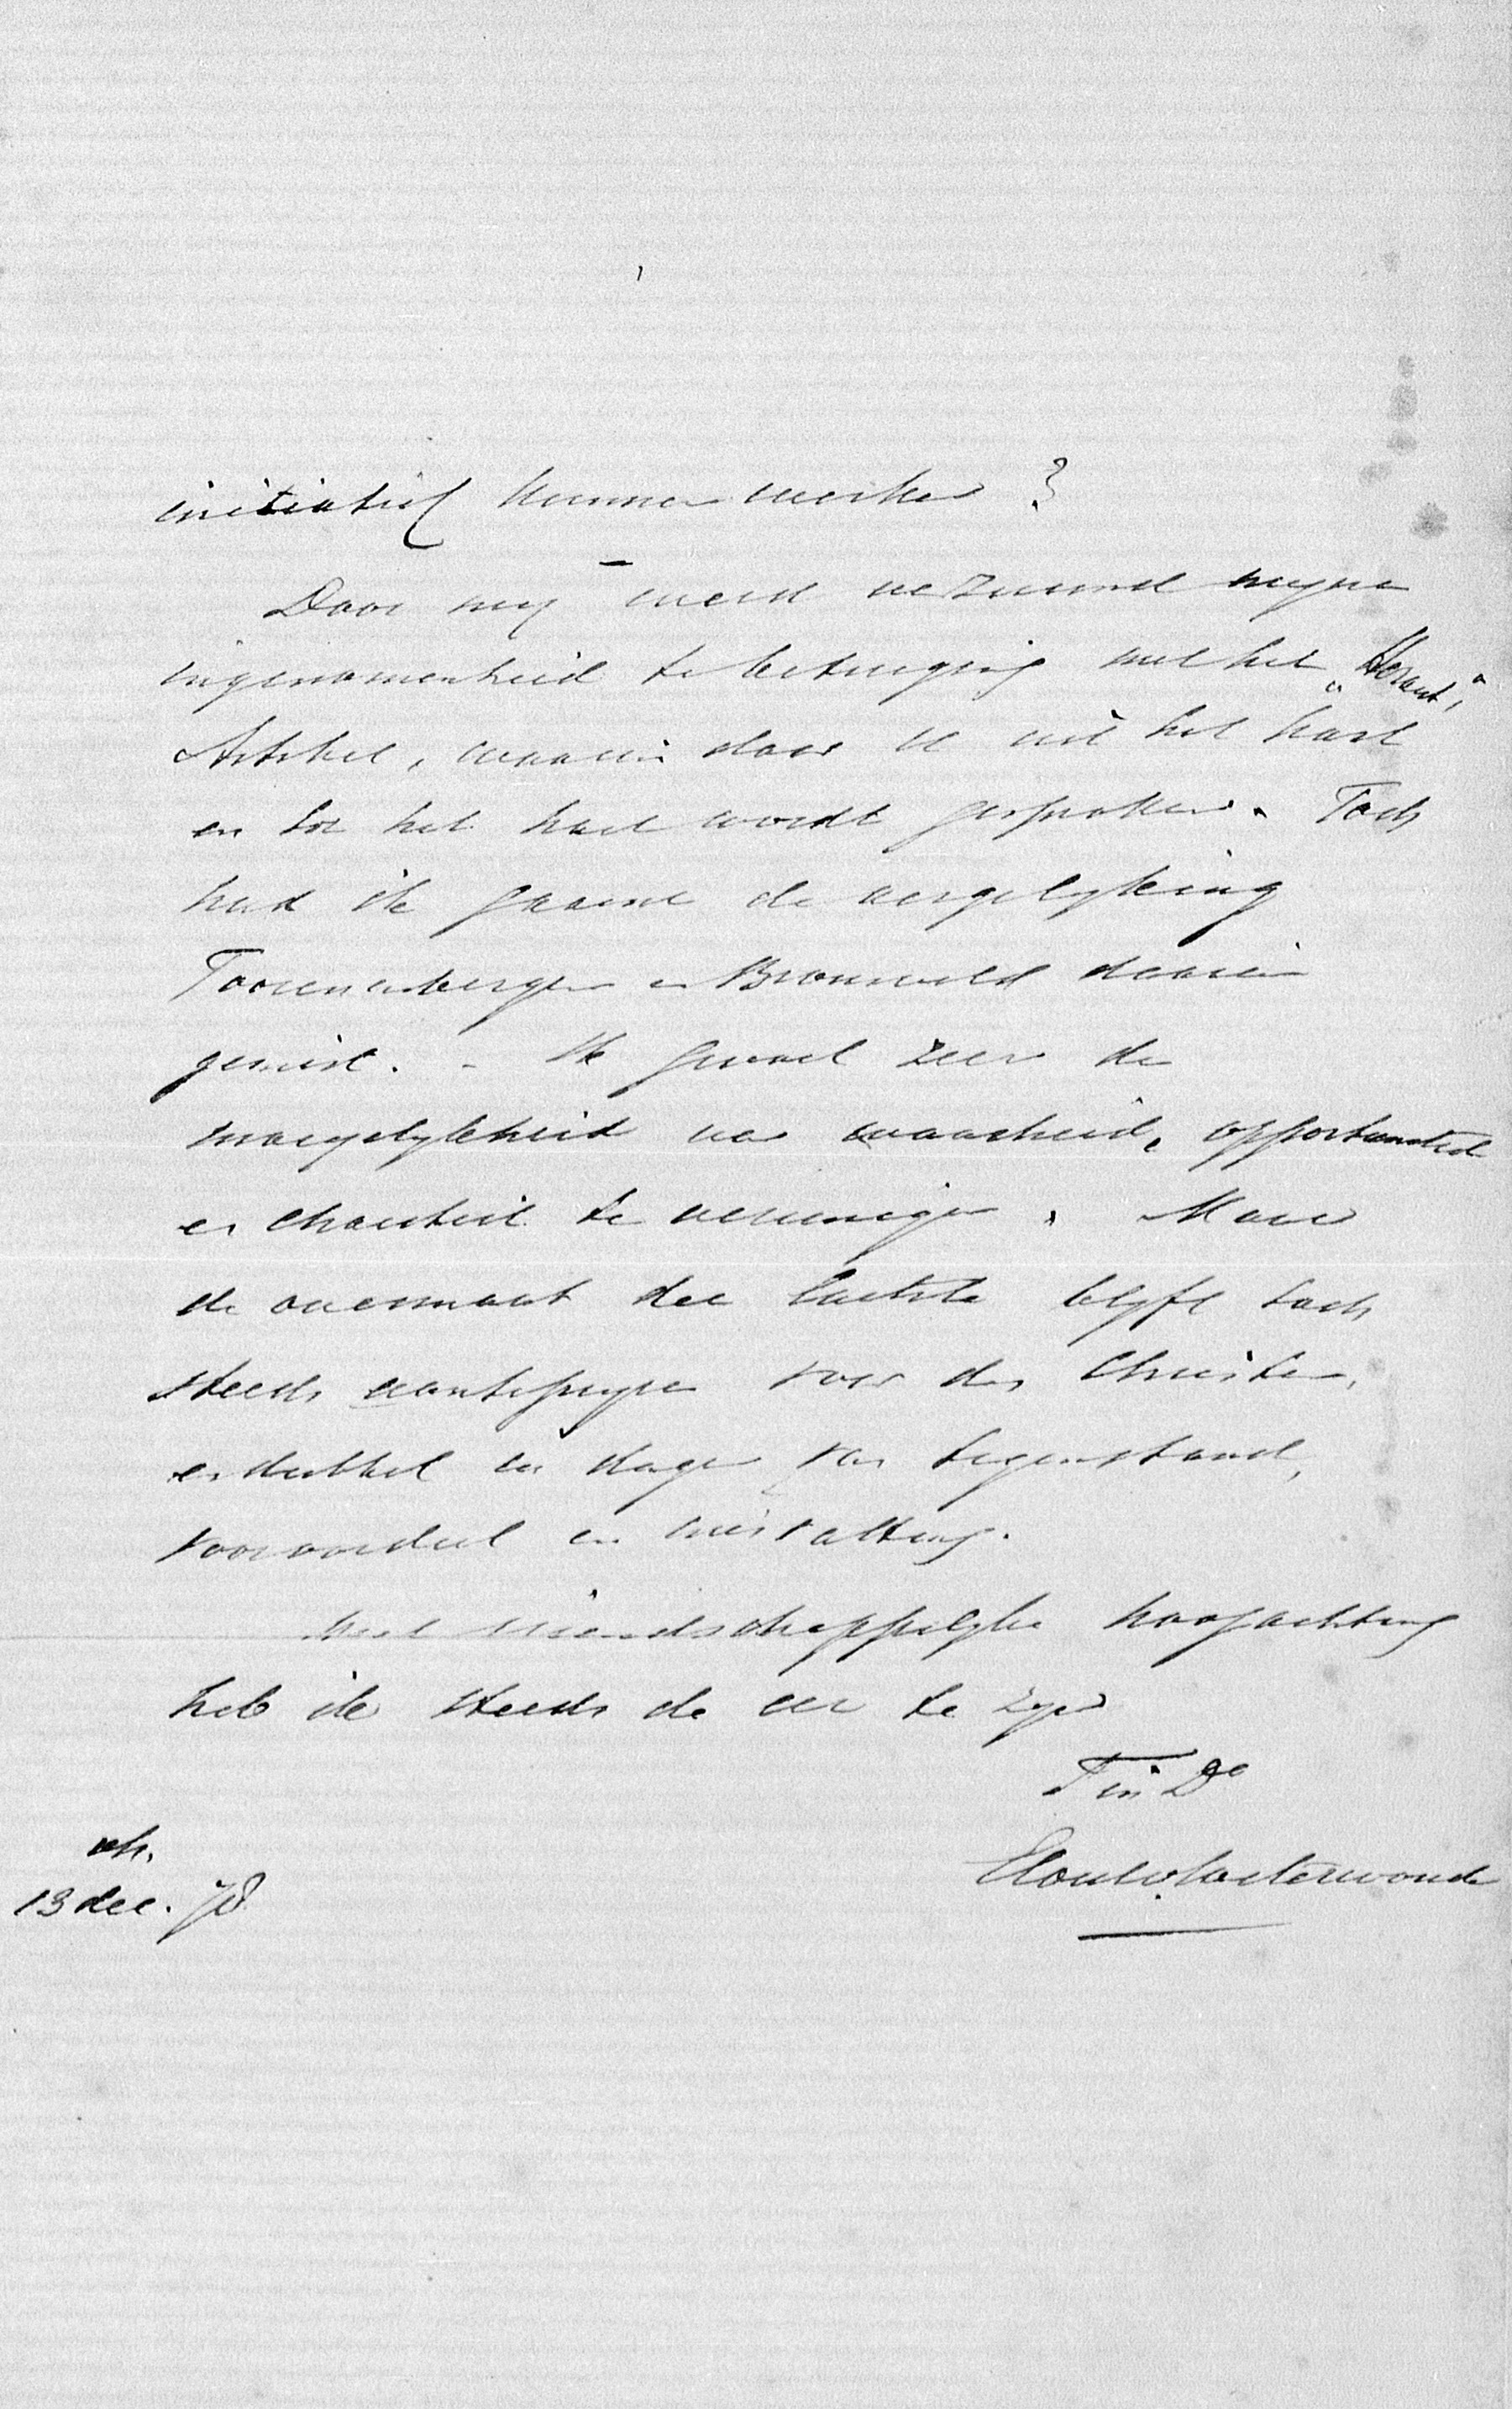 initiatief kunnen werken?
Door mij werd verzuimd mijne
ingenomenheid te betuiging met het „Heraut”
Artikel, waarin door U uit het hart
en tot het hart wordt gesproken. Toch
had ik gaarne de vergelyking
Toorenenbergen en Bronsveld daarin
gemist. - Ik gevoel zeer de
moeyelykheid van waarheid, opportuniteit
en chariteit te vereenigen. Maar
de overmaat der laatste blyft toch
steeds aantepryzen voor den Christen,
en dubbel in dagen van tegenstand,
vooroordeel en misvatting.
Met vriendschappelyke hoogachting
heb ik steeds de eer te zyn
T in Do
Elout v. Soeterwoude
vh.
13 dec. 78